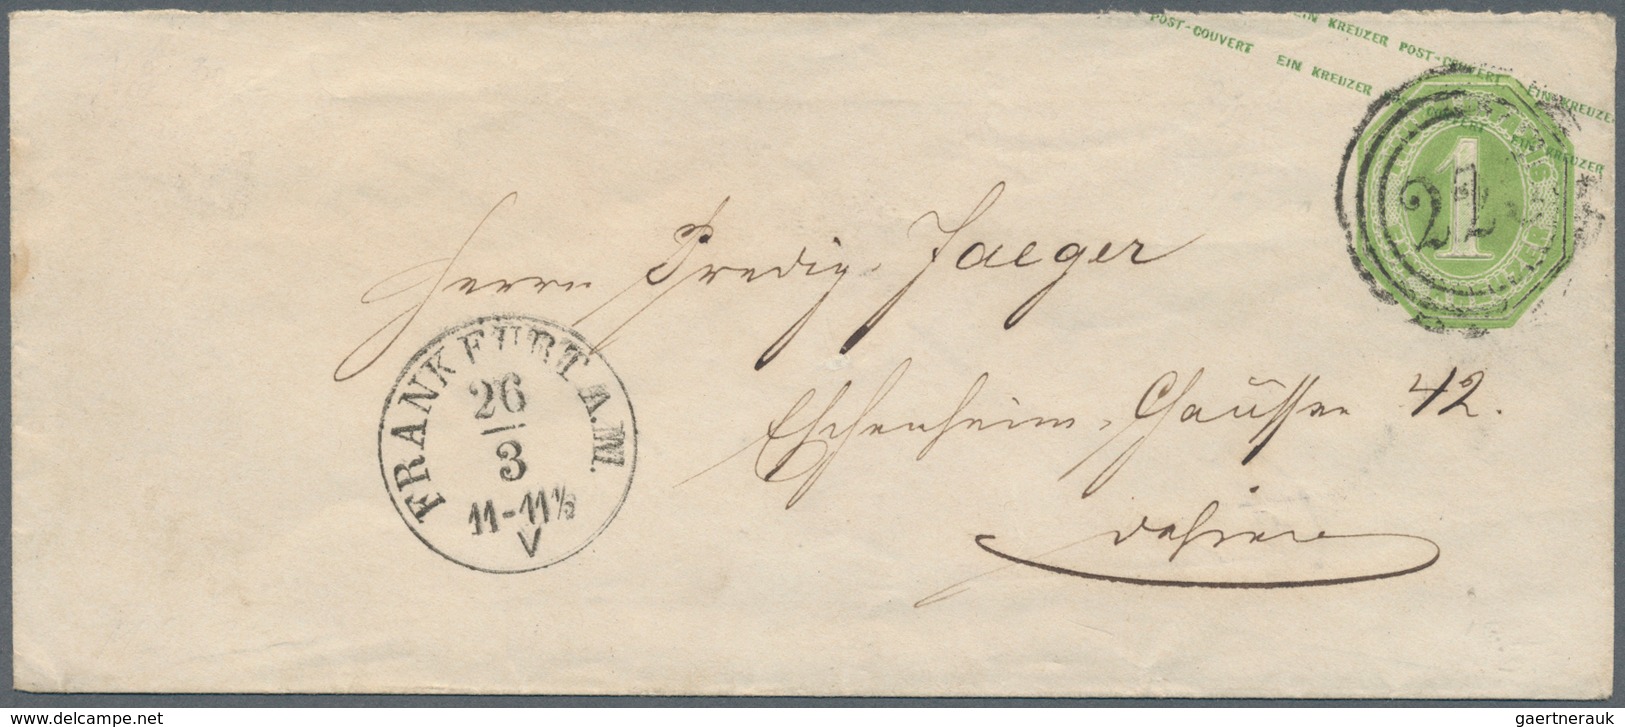 EIN KREUZER POST-COUVERT EIN KREUZER
POST-COUVERT EIN KREUZER EIN KREUZER
1
221
Herrn Predig. Jaeger
Eschenheim. Chaussee 42.
dahier
FRANKFURT A.M.
26
3
11-11½
V
www.delcampe.net
gaertnerauk